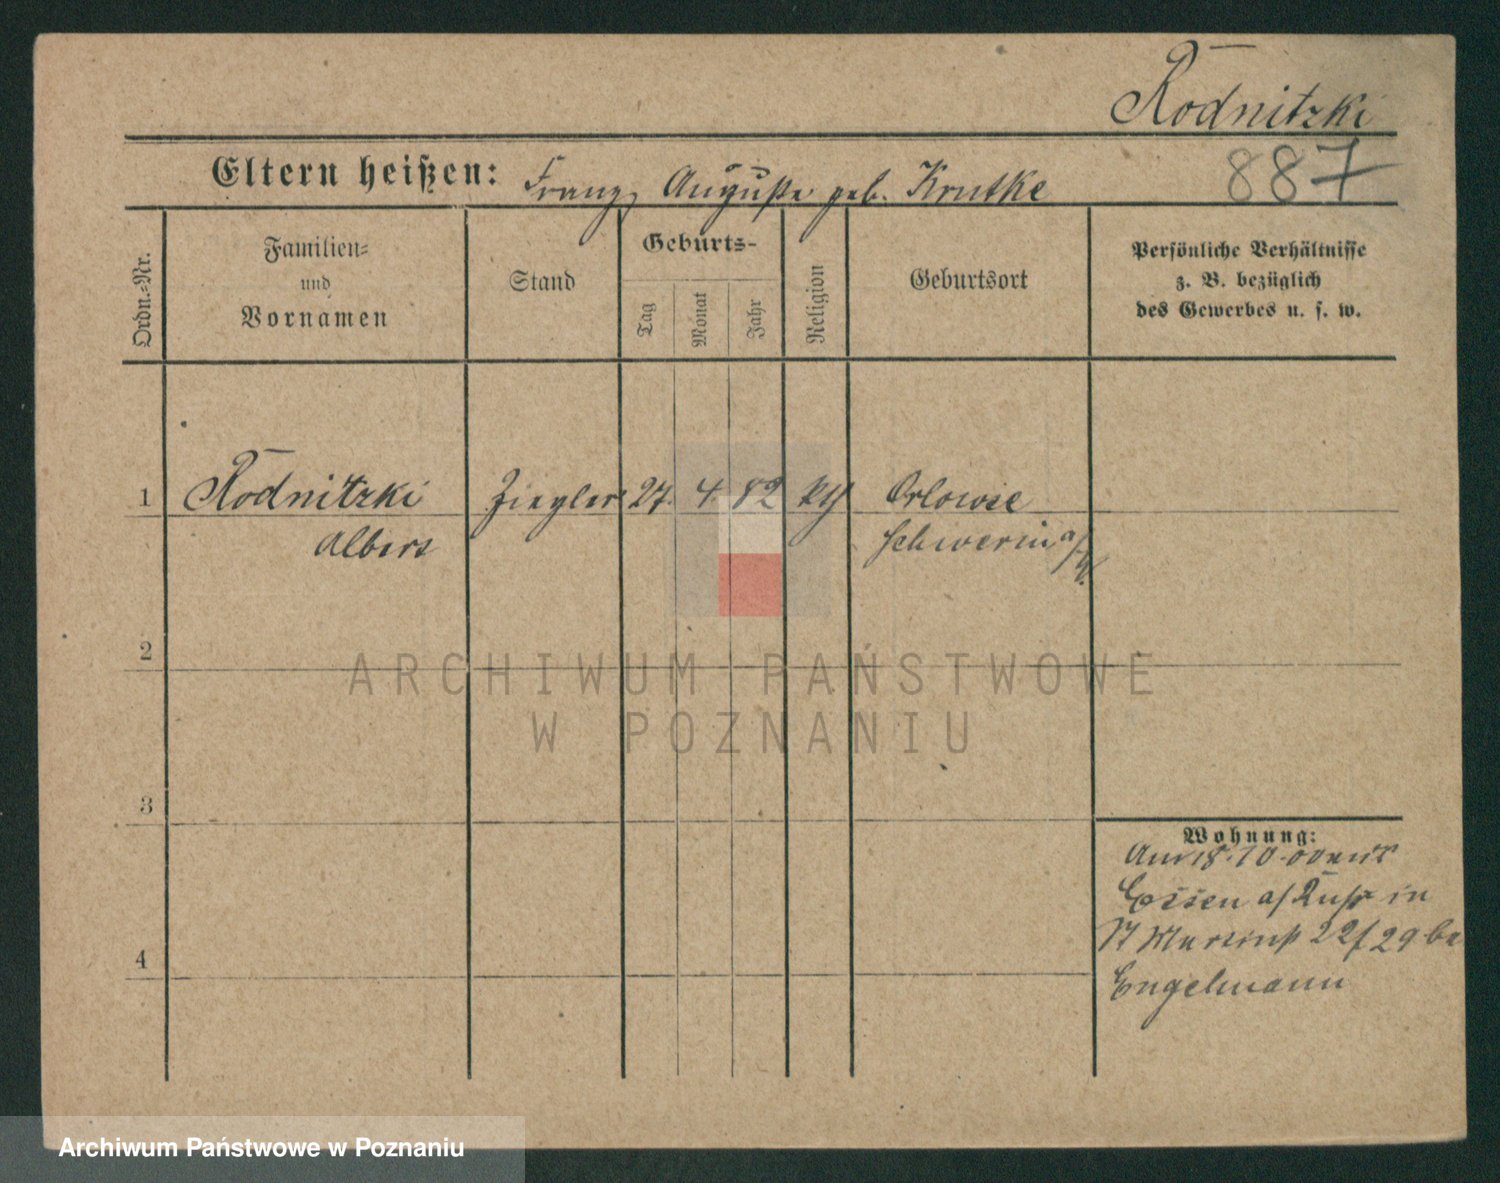 Rodnitzki
Eltern heißen: Franz, Auguste geb. Krutke
887
Ordn.-Nr.
Familien-
und
Vornamen
Stand
Geburts-
Tag
Monat
Jahr
Religion
Geburtsort
Persönliche Verhältnisse
z. B. bezüglich
des Gewerbes u. s. w.
1 Rodnitzki Ziegler 27. 4. 82 Orlowce
Albert Schwerin a/W.
2
3
4
Wohnung:
Am 18. 10. 00 aus
Essen a/Ruhr in
St Martinst 22/29 be
Engelmann
ARCHIWUM PAŃSTWOWE
W POZNANIU
Archiwum Państwowe w Poznaniu